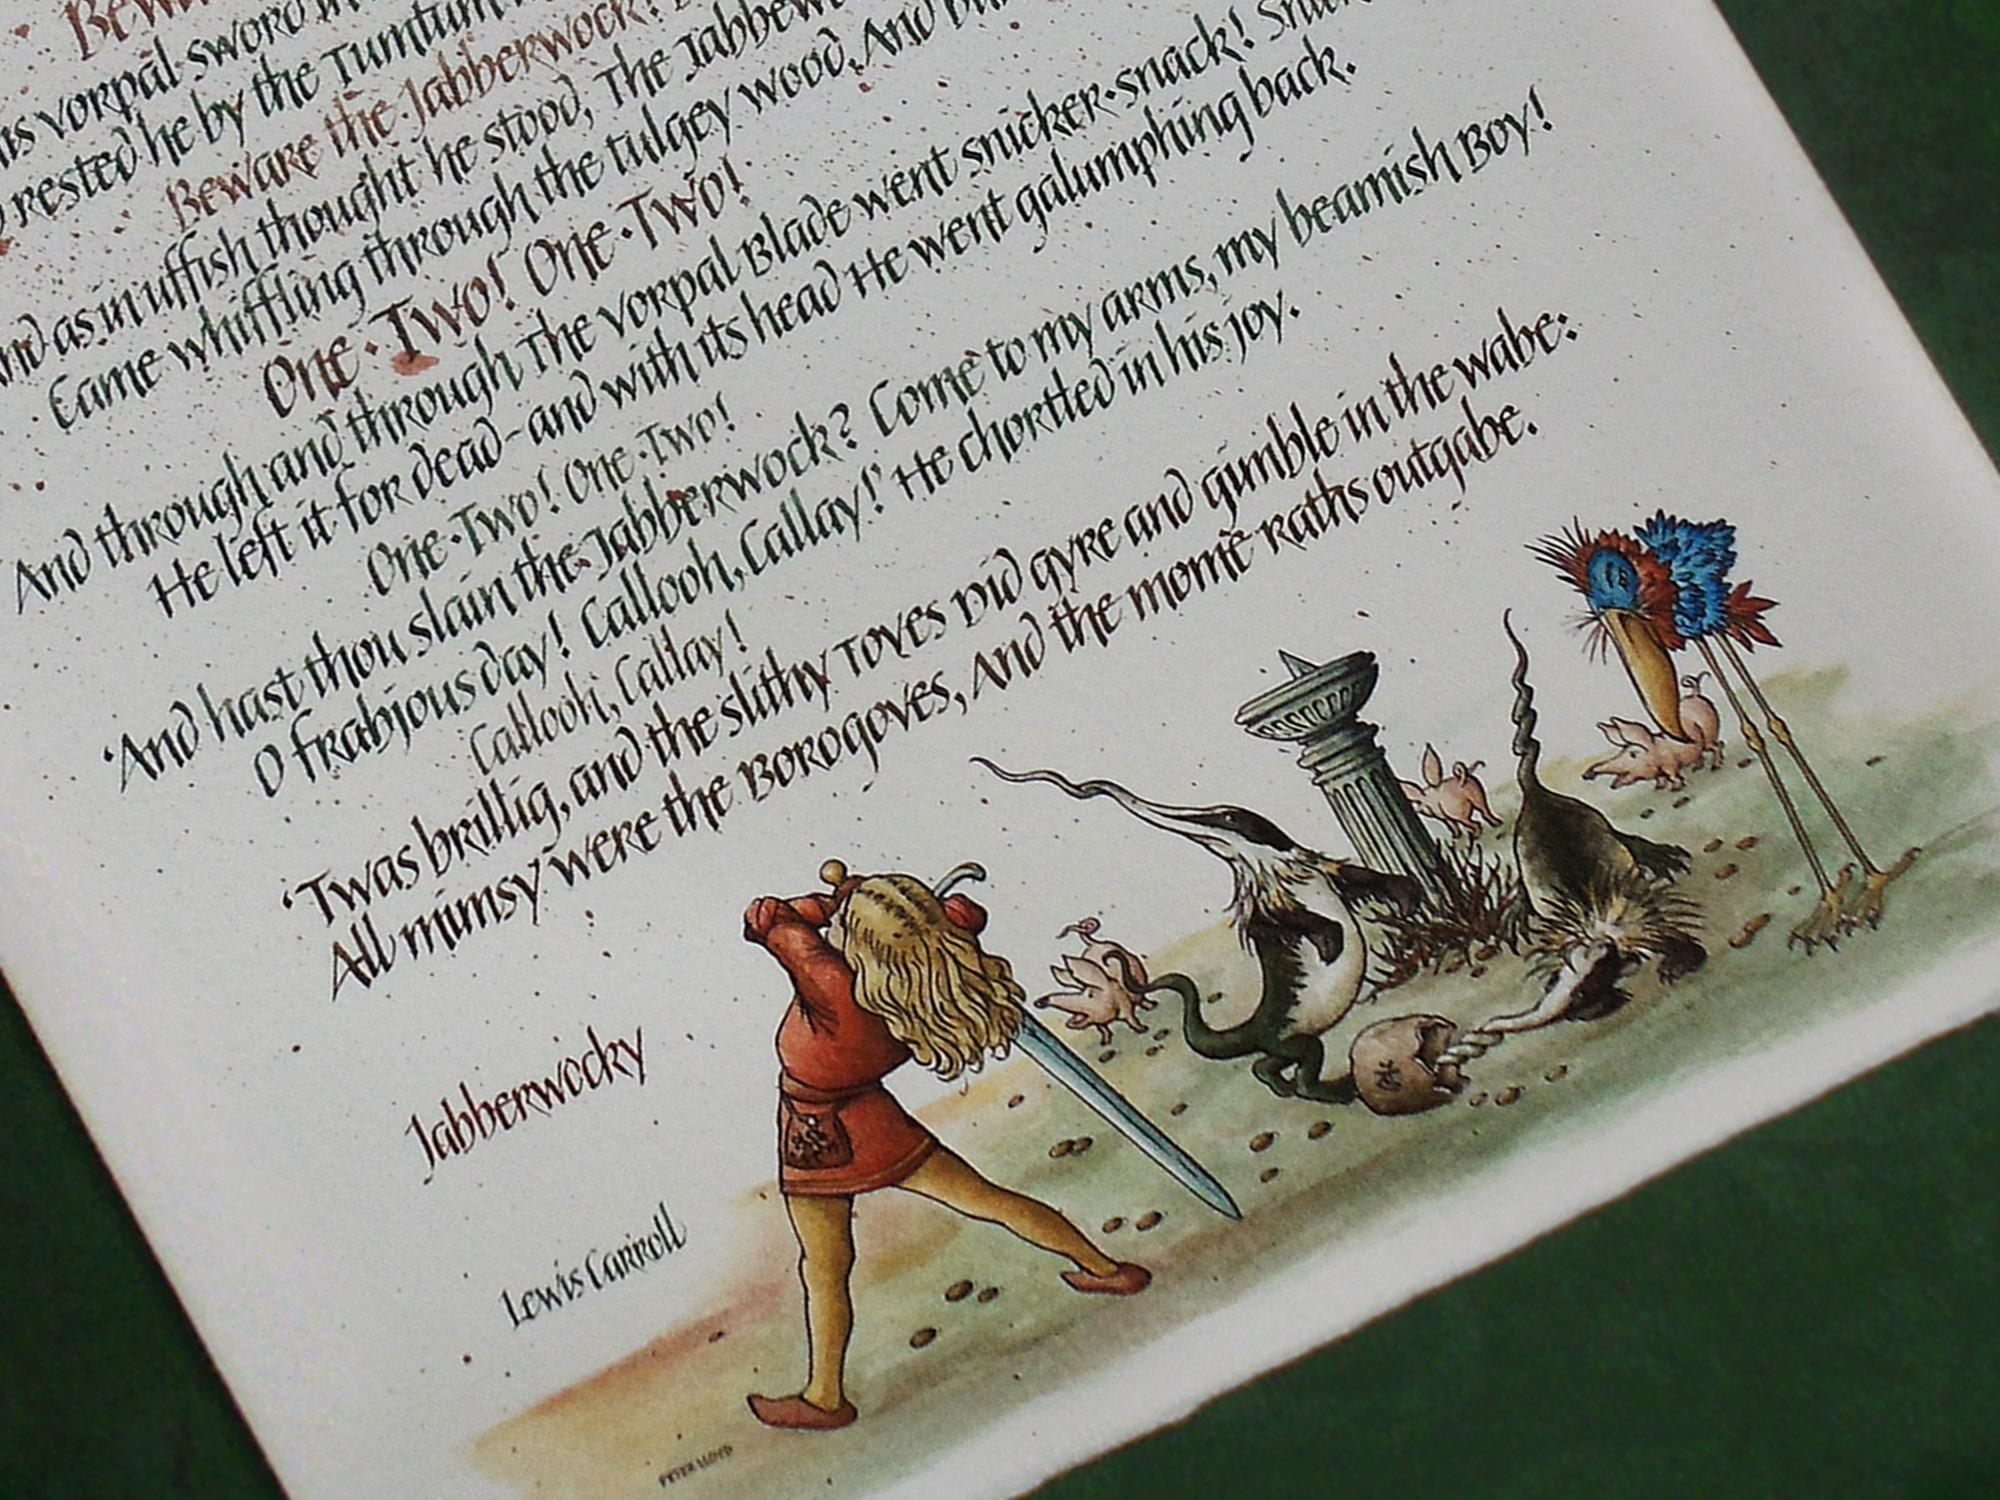 his vorpal sword in
rested he by the Tumtum
Beware the Jabberwock!
And as in uffish thought he stood, The Jabberw
Came whiffling through the tulgey wood, And bur
One·Two! One·Two!
And through and through The vorpal Blade went snicker·snack! Snick
He left it for dead-and with its head He went galumphing back.
One·Two! One·Two!
'And hast thou slain the Jabberwock? Come to my arms, my beamish Boy!
O frabjous day! Callooh, Callay!' He chortled in his joy.
Callooh, Callay!
'Twas brillig, and the slithy Toves Did gyre and gimble in the wabe:
All mimsy were the Borogoves, And the mome raths outgabe.
Jabberwocky
Lewis Carroll
PETER LLOYD